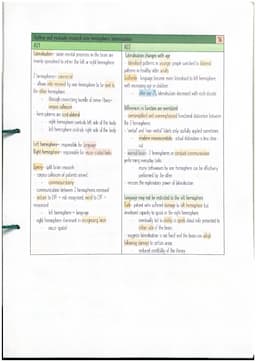 Outline and evaluate research into hemispheric lateralisation
AO1
Lateralisation - some mental processes in the brain are
mainly specialised to either the left or right hemisphere
2 hemispheres connected
allows info received by one hemisphere to be sent to
the other hemisphere
through connecting bundle of nerve fibres -
corpus callosum
hemispheres are contralateral
right hemisphere controls left side of the body
left hemisphere controls right side of the body
Left hemisphere - responsible for language
Right hemisphere - responsible for
Sperry - split brain research
corpus callosum of patients severed
commissurotomy
communication between 2 hemispheres removed
left hemisphere = language
right hemisphere dominant in recognising faces
AO2
Lateralisation changes with age
lateralised patterns in younger people switched to bilateral
patterns in healthy older adults
language became more lateralised to left hemisphere
with increasing age in children
after age 25, lateralisation decreased with each decade
Differences in function are overstated
functional distinction between
the 2 hemispheres
'verbal' and 'non-verbal' labels only usefully applied
modern neuroscientists: actual distinction is less clear-
cut
2 hemispheres in constant communication
performing everyday tasks
many behaviours by one hemisphere can be effectively
performed by the other
reduces the explanatory power of lateralisation
Language may not be restricted to the left hemisphere
patient who suffered damage to left hemisphere but
developed capacity to speak in the right hemisphere
eventually led to ability to speak about info presented to
either side of the brain
suggests lateralisation is not fixed and the brain can adapt
following damage to certain areas
reduced credibility of the theory